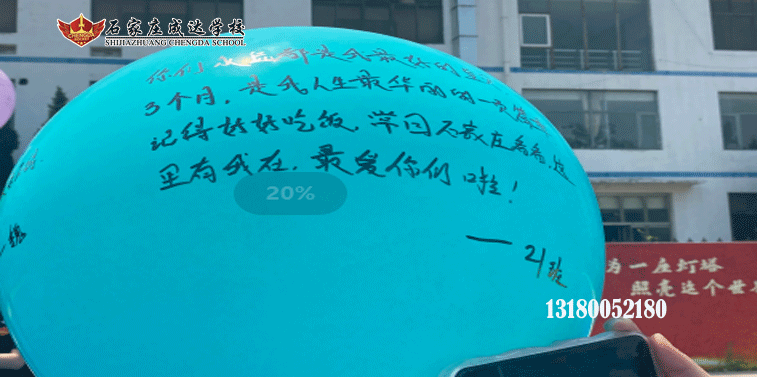 石家庄成达学校
SHIJIAZHUANG CHENGDA SCHOOL
你们永远都是我最
3个月，是我人生最华丽的一
记得好好吃饭，常回石家庄看看，这
里有我在，最爱你们啦！
20%
为一座灯塔
照亮这个世
13180052180